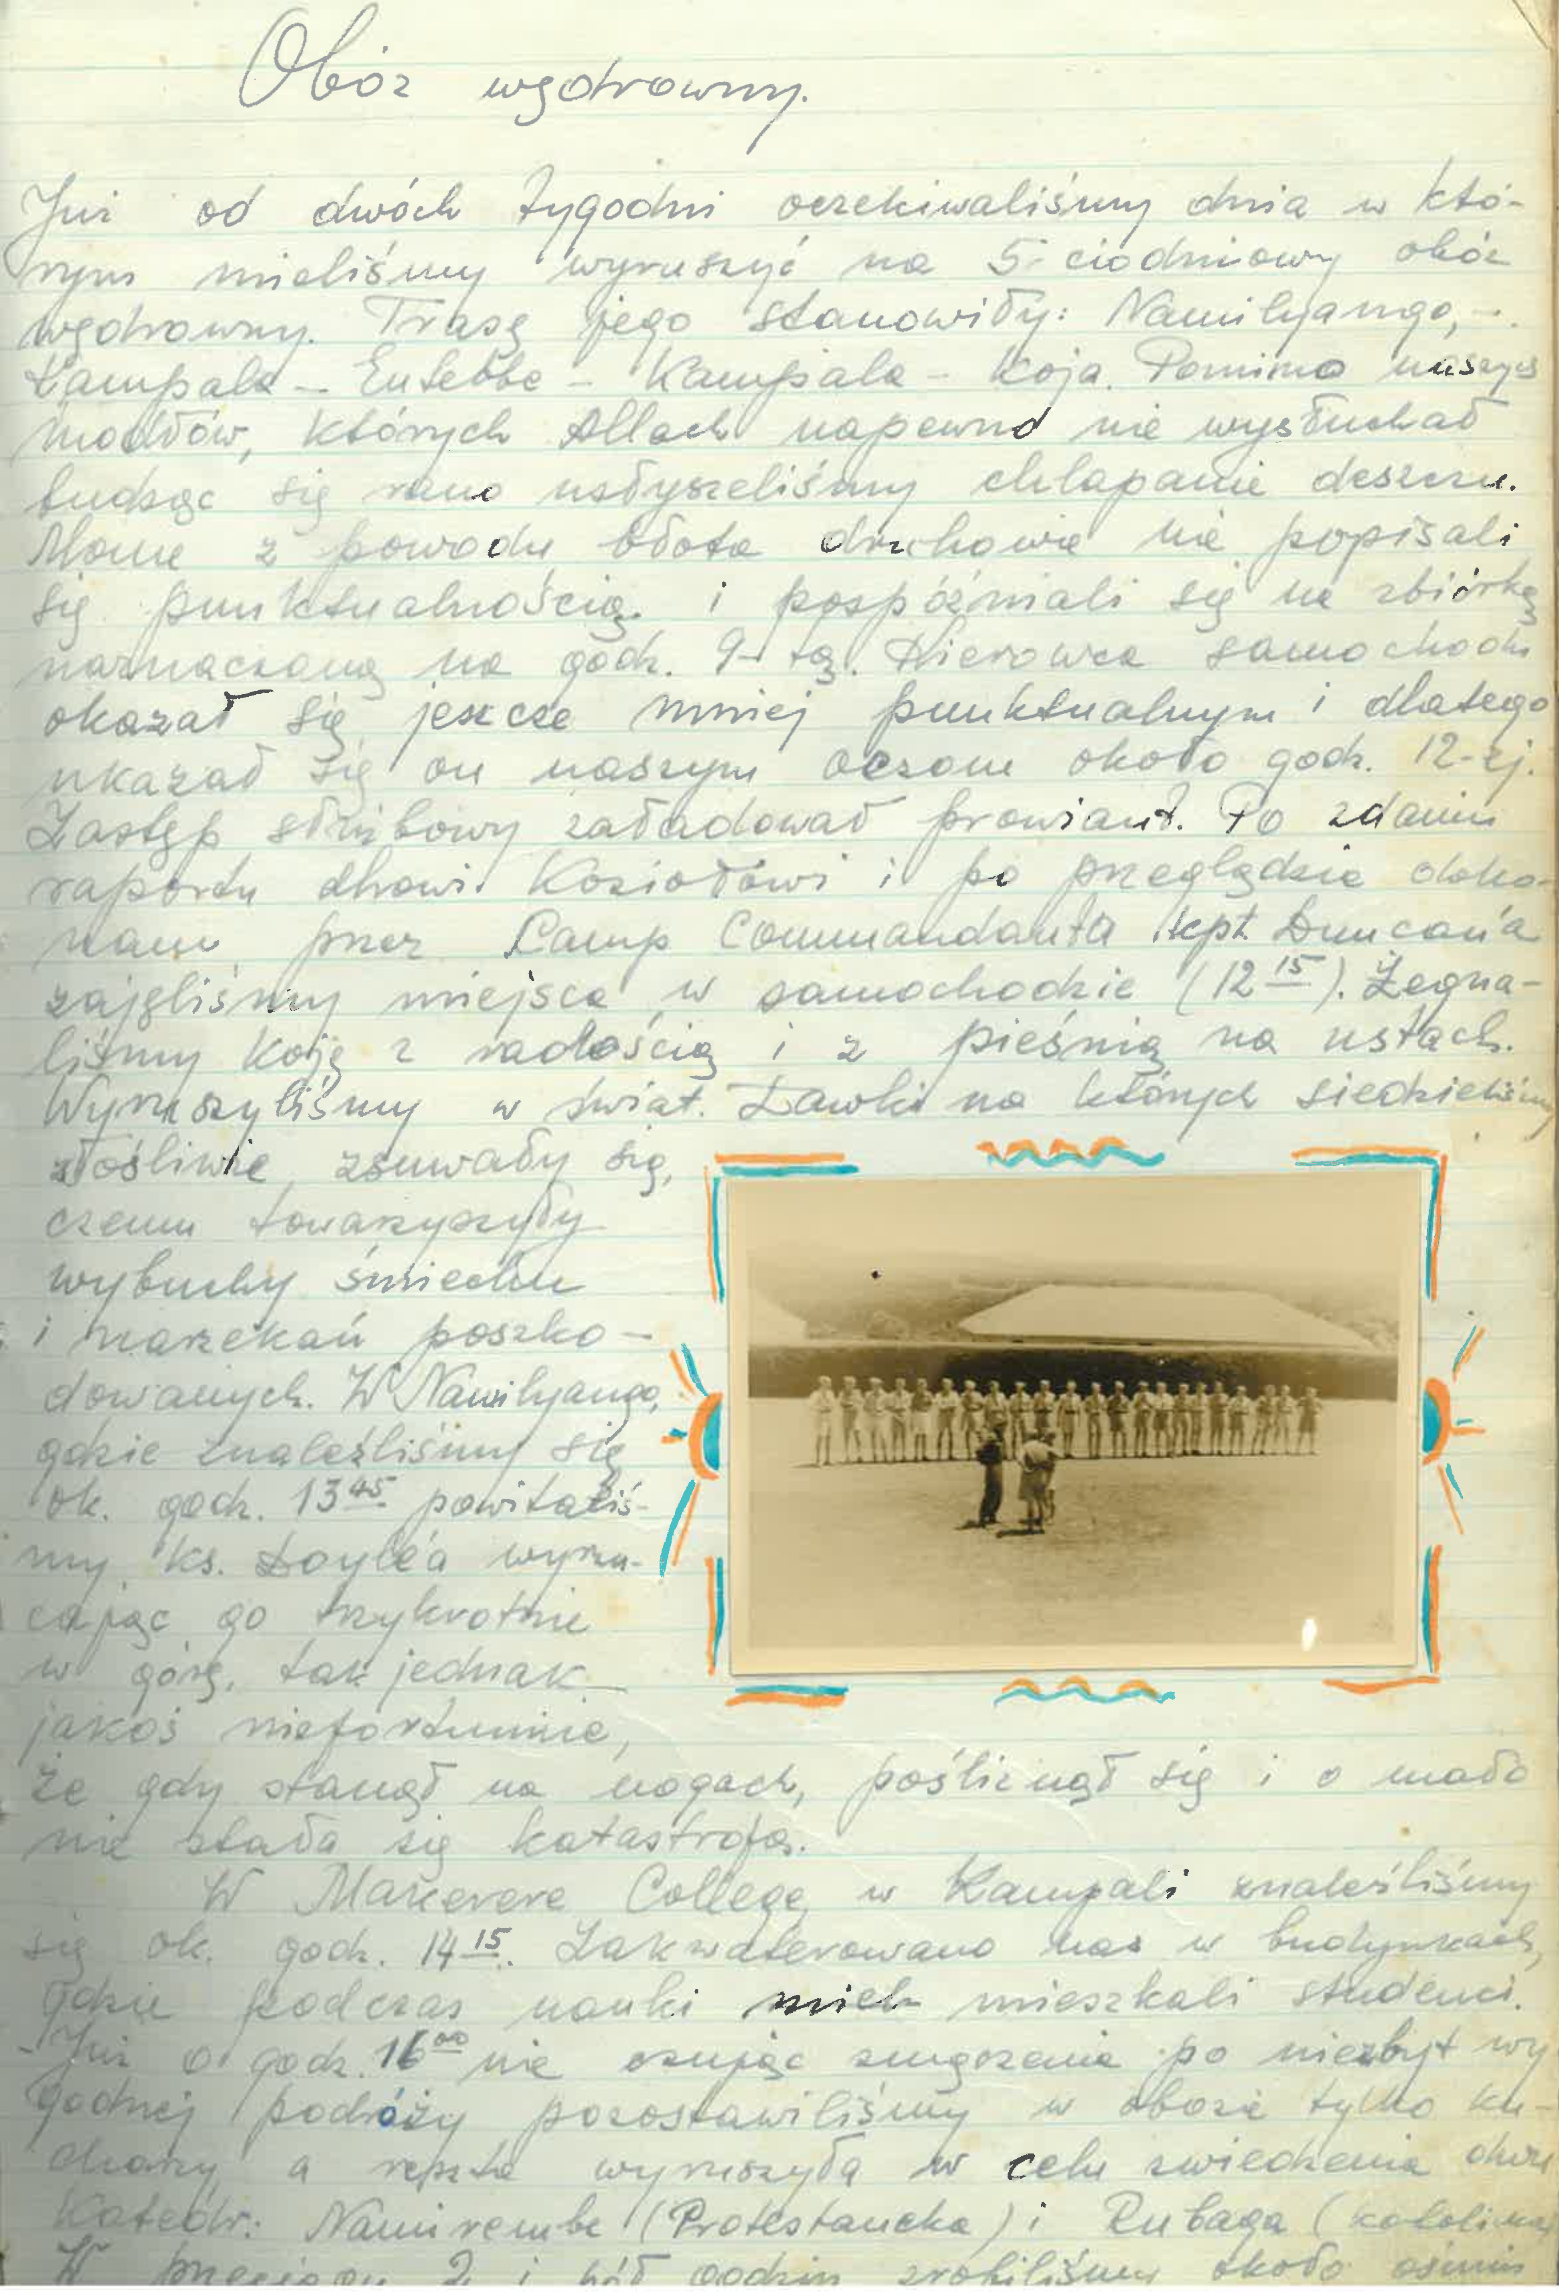 Obóz wędrowny.
Już od dwóch tygodni oczekiwaliśmy dnia w któ-
rym mieliśmy wyruszyć na 5-ciodniowy obóz
wędrowny. Trasę jego stanowiły: Namilyango, -
Kampala - Entebbe - Kampala - Koja. Pomimo naszych
modłów, których Allach napewno nie wysłuchał
budząc się rano usłyszeliśmy chlapanie deszczu.
z powodu błota druhowie nie popisali
się punktualnością i pospóźniali się na zbiórkę
naznaczoną na godz. 9-tą. Kierowca samochodu
okazał się jeszcze mniej punktualnym i dlatego
ukazał się on naszym oczom około godz. 12-ej.
Zastęp służbowy załadował prowiant. Po zdaniu
raportu dhowi Koziołowi i po przeglądzie doko-
nanu przez Camp Commandanta kpt. Duncan'a
zajęliśmy miejsca w samochodzie (12 15). Żegna-
liśmy Koję z radością i z pieśnią na ustach.
Wyruszyliśmy w świat. Ławki na których siedzieliśmy
złośliwie zsuwały się,
czemu towarzyszyły
wybuchy śmiechu
i narzekań poszko-
dowanych. W Namilyango,
gdzie znaleźliśmy się
ok. godz. 13 45 powitaliś-
my ks. Doyle'a wyrzu-
cając go trzykrotnie
w górę, tak jednak
jakoś niefortunnie,
że gdy stanął na nogach, pośliznął się i o mało
nie stała się katastrofa.
W Makerere College w Kampali znaleźliśmy
się ok. godz. 14 15. Zakwaterowano nas w budynkach,
gdzie podczas nauki mieszkali studenci.
Już o godz. 16 00 nie czując zmęczenia po niezbyt wy
godnej podróży pozostawiliśmy w obozie tylko ku-
charzy, a reszta wyruszyła w celu zwiedzenia dwu
Katedr: Namirembe (Protestancka) i Rubaga (katolicka)
W przeciągu 2 i pół godzin zrobiliśmy około ośmiu